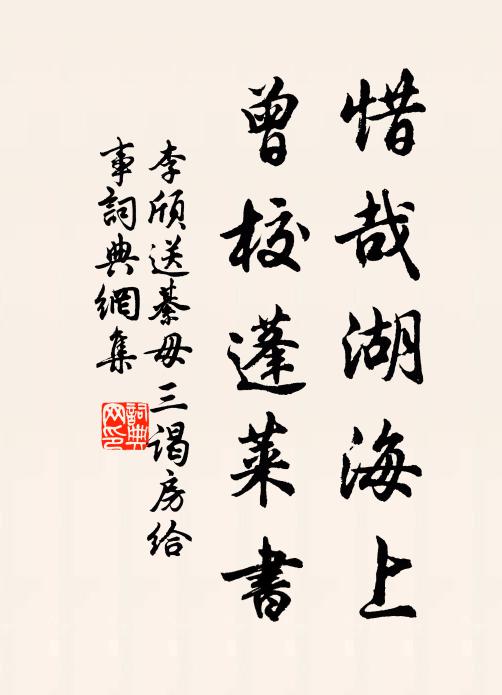 惜哉湖海上
曾校蓬萊書
李頎送綦毋三謁房給
事詞典網集
詞典
网印